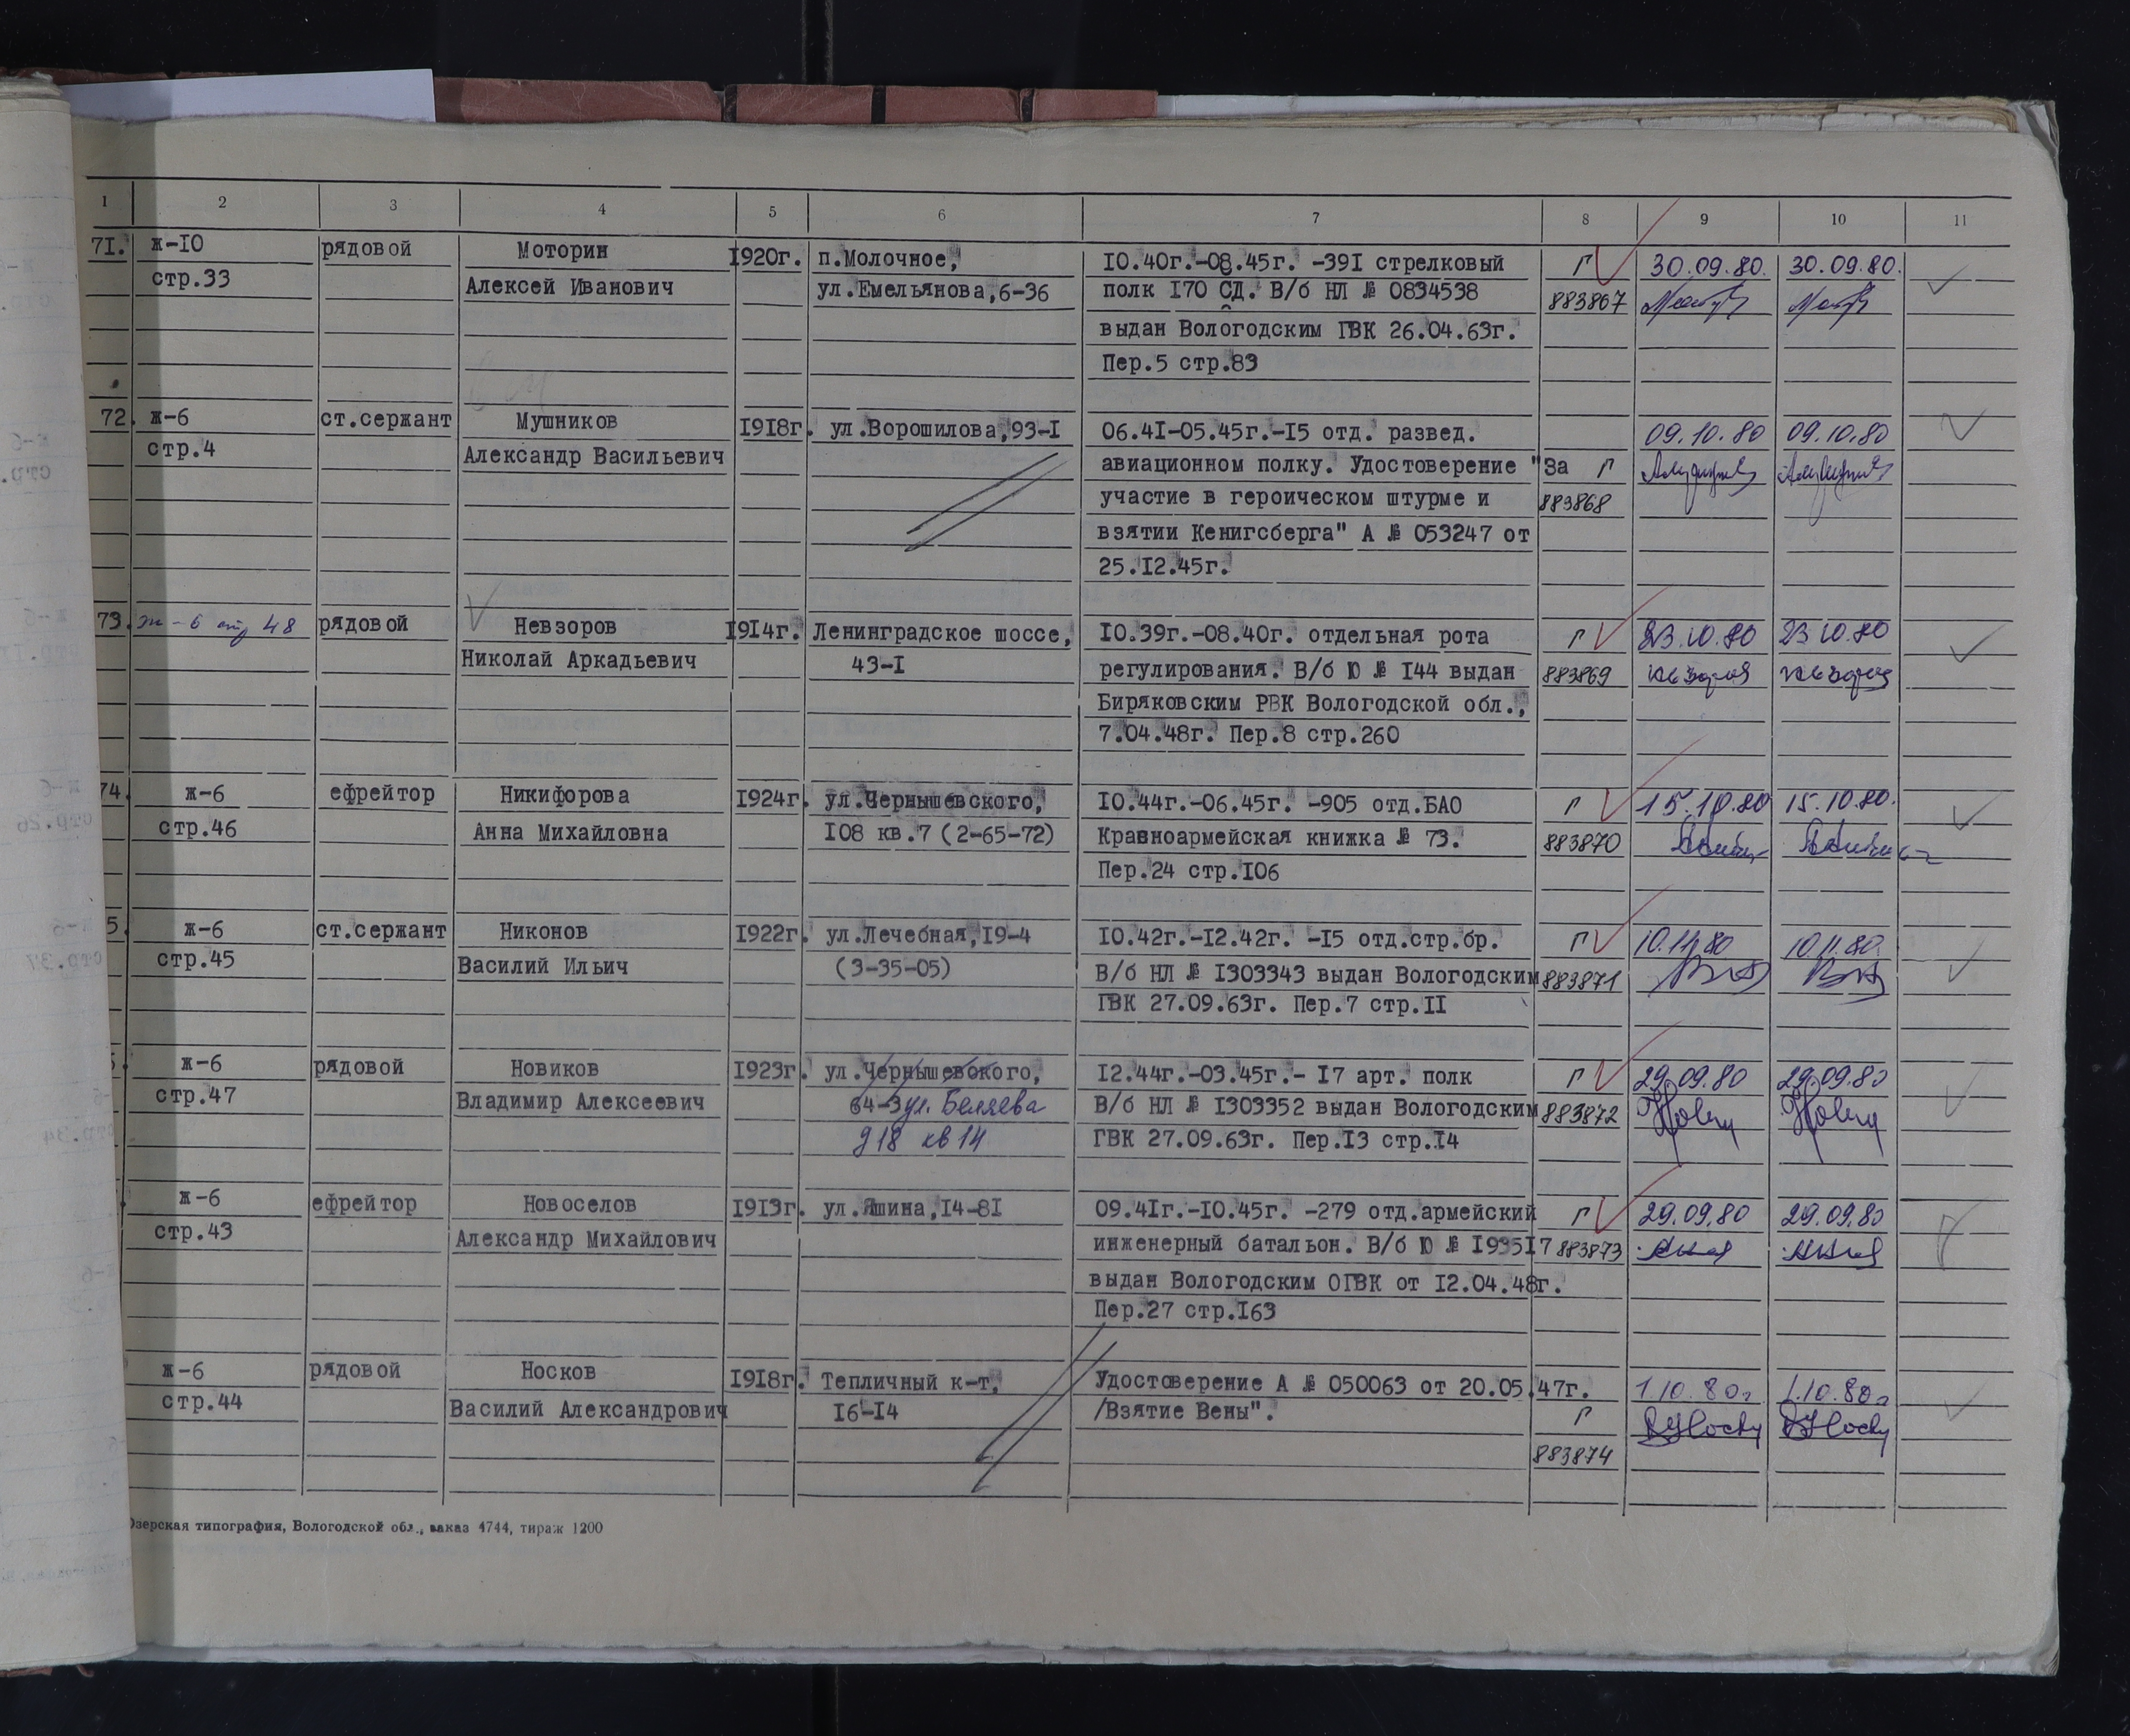 1 2 3 4 5 6 7 8 9 10 11
71. ж-10 рядовой Моторин 1920г. п.Молочное, 10.40г.-08.45г. -391 стрелковый Г 30.09.80. 30.09.80.
стр.33 Алексей Иванович ул.Емельянова,6-36 полк 170 СД. В/б НЛ № 0834538 883867
выдан Вологодским ГВК 26.04.63г.
Пер.5 стр.83
72. ж-6 ст.сержант Мушников 1918г. ул.Ворошилова,93-1 06.41-05.45г.-15 отд. развед. 09.10.80 09.10.80
стр.4 Александр Васильевич авиационном полку. Удостоверение "За Г
участие в героическом штурме и 883868
взятии Кенигсберга" А № 053247 от
25.12.45г.
73. ж-6 стр 48 рядовой Невзоров 1914г. Ленинградское шоссе, 10.39г.-08.40г. отдельная рота Г 23.10.80 23 10.80
Николай Аркадьевич 43-1 регулирования. В/б Ю № 144 выдан 883869
Биряковским РВК Вологодской обл.,
7.04.48г. Пер.8 стр.260
74. ж-6 ефрейтор Никифорова 1924г. ул.Чернышевского, 10.44г.-06.45г. -905 отд.БАО Г 15.10.80 15.10.80.
стр.46 Анна Михайловна 108 кв.7 (2-65-72) Кравноармейская книжка № 73. 883870
Пер.24 стр.106
5. ж-6 ст.сержант Никонов 1922г. ул.Лечебная,19-4 10.42г.-12.42г. -15 отд.стр.бр. Г 10.11.80 10.11.80.
стр.45 Василий Ильич (3-35-05) В/б НЛ № 1303343 выдан Вологодским 883871
ГВК 27.09.63г. Пер.7 стр.11
ж-6 рядовой Новиков 1923г. ул.Чернышевского, 12.44г.-03.45г.- 17 арт. полк Г 29.09.80 29.09.80
стр.47 Владимир Алексеевич 64-3 ул. Беляева В/б НЛ № 1303352 выдан Вологодским 883872
д 18 кв 14 ГВК 27.09.63г. Пер.13 стр.14
ж-6 ефрейтор Новоселов 1913г. ул.Яшина,14-81 09.41г.-10.45г. -279 отд.армейский Г 29.09.80 29.09.80
стр.43 Александр Михайлович инженерный батальон. В/б Ю № 193517 883873
выдан Вологодским ОГВК от 12.04.48г.
Пер.27 стр.163
ж-6 рядовой Носков 1918г. Тепличный к-т, Удостоверение А № 050063 от 20.05.47г. 1.10.80г 1.10.80г
стр.44 Василий Александрович 16-14 /Взятие Вены". Г
883874
Озерская типография, Вологодской обл., заказ 4744, тираж 1200